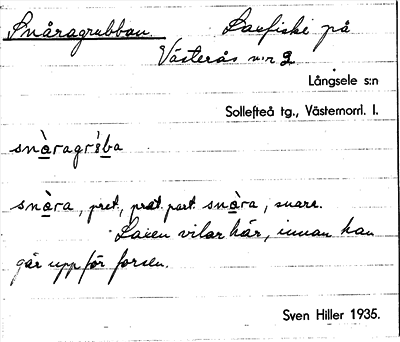 Snåragrubban. Laxfiske på
Västerås n:r 2
Långsele s:n
Sollefteå tg., Västernorrl. l.
snàragrúba
snàra, pret., pret part snàra, snarr.
Laxen vilar här, innan han
går upp för forsen.
Sven Hiller 1935.